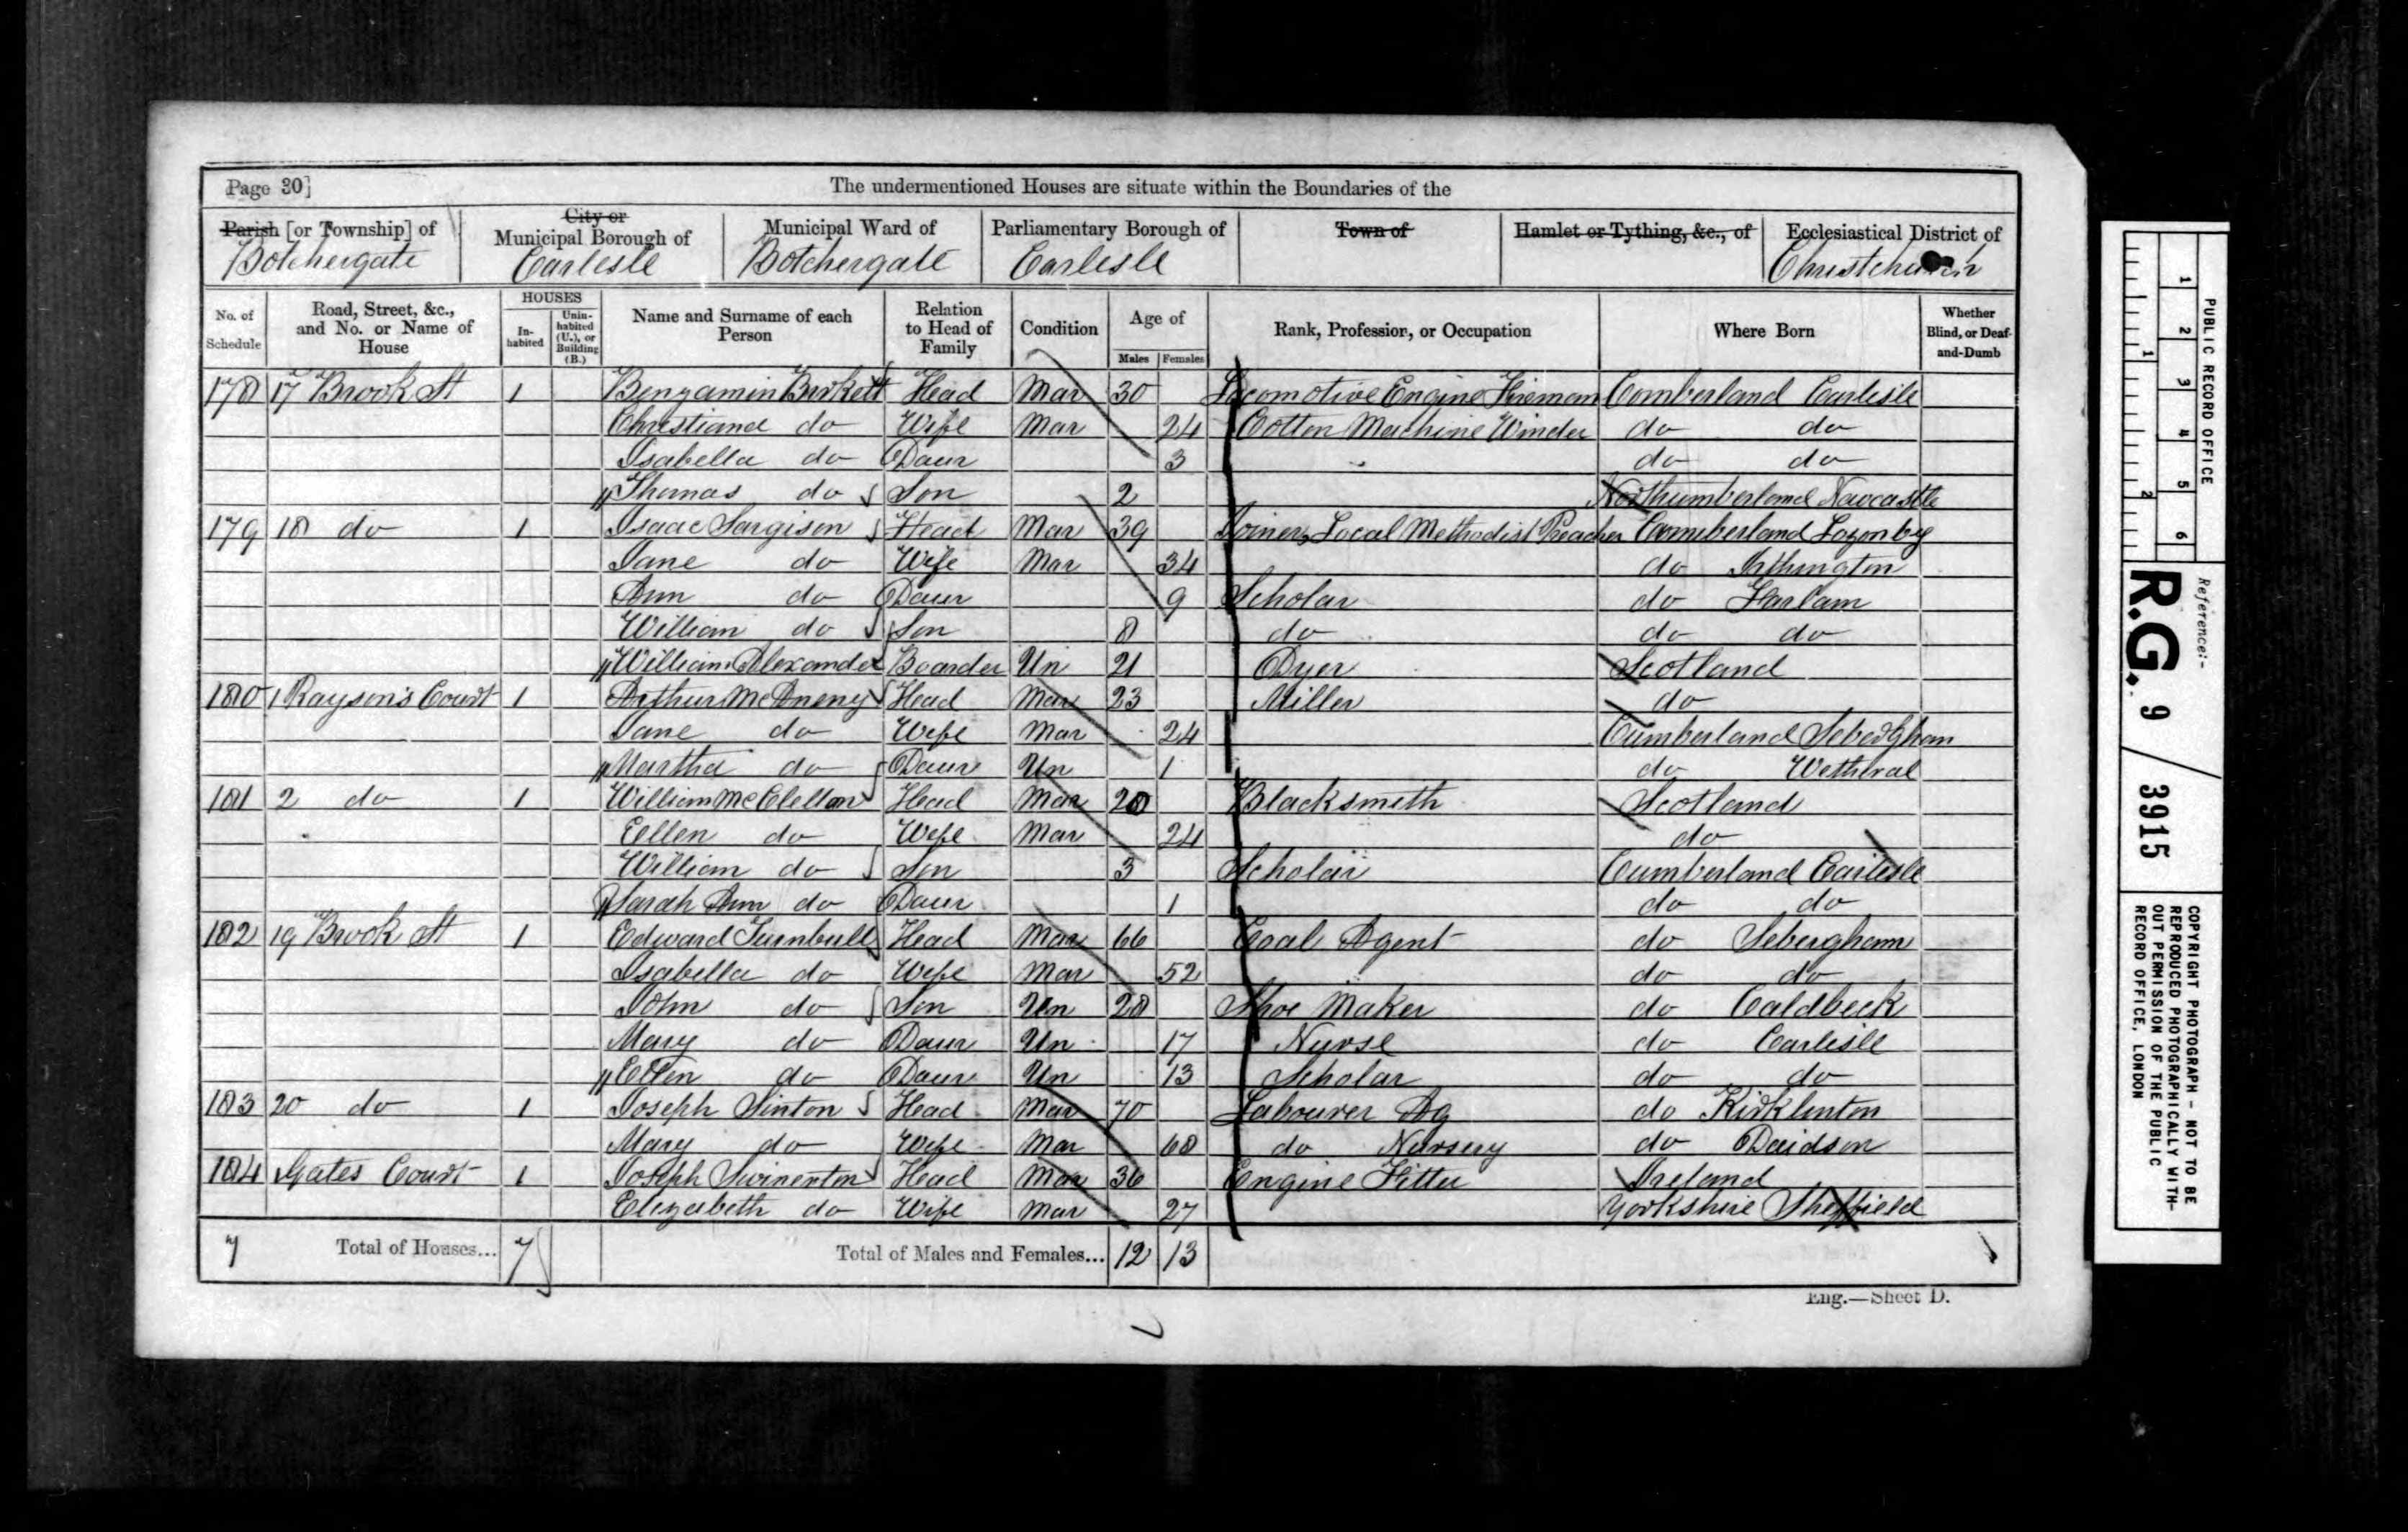 Page 30]
The undermentioned Houses are situate within the Boundaries of the
Parish [or Township] of
Botchergate
City or Municipal Borough of
Carlisle
Municipal Ward of
Botchergate
Parliamentary Borough of
Carlisle
Town of
Hamlet or Tything, &c., of
Ecclesiastical District of
Christchurch
No. of Schedule
Road, Street, &c., and No. or Name of House
HOUSES
In-habited
Unin-habited (U.), or Building (B.)
Name and Surname of each Person
Relation to Head of Family
Condition
Age of
Males Females
Rank, Profession, or Occupation
Where Born
Whether Blind, or Deaf-and-Dumb
178 17 Brook St 1 Benjamin Birkett Head Mar 30 Locomotive Engine Fireman Cumberland Carlisle
Christiana do Wife Mar 24 Cotton Machine Winder do do
Isabella do Daur 3 do do
Thomas do Son 2 Northumberland Newcastle
179 18 do 1 Isaac Sargison Head Mar 39 Joiner, Local Methodist Preacher Cumberland Lazonby
Jane do Wife Mar 34 do Irthington
Ann do Daur 9 Scholar do Farlam
William do Son 8 do do do
William Alexander Boarder Un 21 Dyer Scotland
180 1 Rayson's Court 1 Arthur McAneny Head Mar 23 Miller do
Jane do Wife Mar 24 Cumberland
Martha do Daur Un 1 do Wetheral
181 2 do 1 William McClellan Head Mar 28 Blacksmith Scotland
Eellen do Wife Mar 24 do
William do Son 3 Scholar Cumberland Carlisle
Sarah Ann do Daur 1 do do
182 19 Brook St 1 Edward Turnbull Head Mar 66 Coal Agent do Sebergham
Isabella do Wife Mar 52 do do
John do Son Un 28 Shoe Maker do Caldbeck
Mary do Daur Un 17 Nurse do Carlisle
Ellen do Daur Un 13 Scholar do do
183 20 do 1 Joseph Sinton Head Mar 70 Labourer Ag do Kirklinton
Mary do Wife Mar 68 do Nursery do
184 Gates Court 1 Joseph Swinerton Head Mar 36 Engine Fitter Ireland
Elizabeth do Wife Mar 27 Yorkshire Sheffield
7 Total of Houses... 7 Total of Males and Females... 12 13
Eng.—Sheet D.
PUBLIC RECORD OFFICE
1 2 3 4 5 6
1 2
Reference:-
R.G. 9 / 3915
COPYRIGHT PHOTOGRAPH - NOT TO BE
REPRODUCED PHOTOGRAPHICALLY WITH-
OUT PERMISSION OF THE PUBLIC
RECORD OFFICE, LONDON